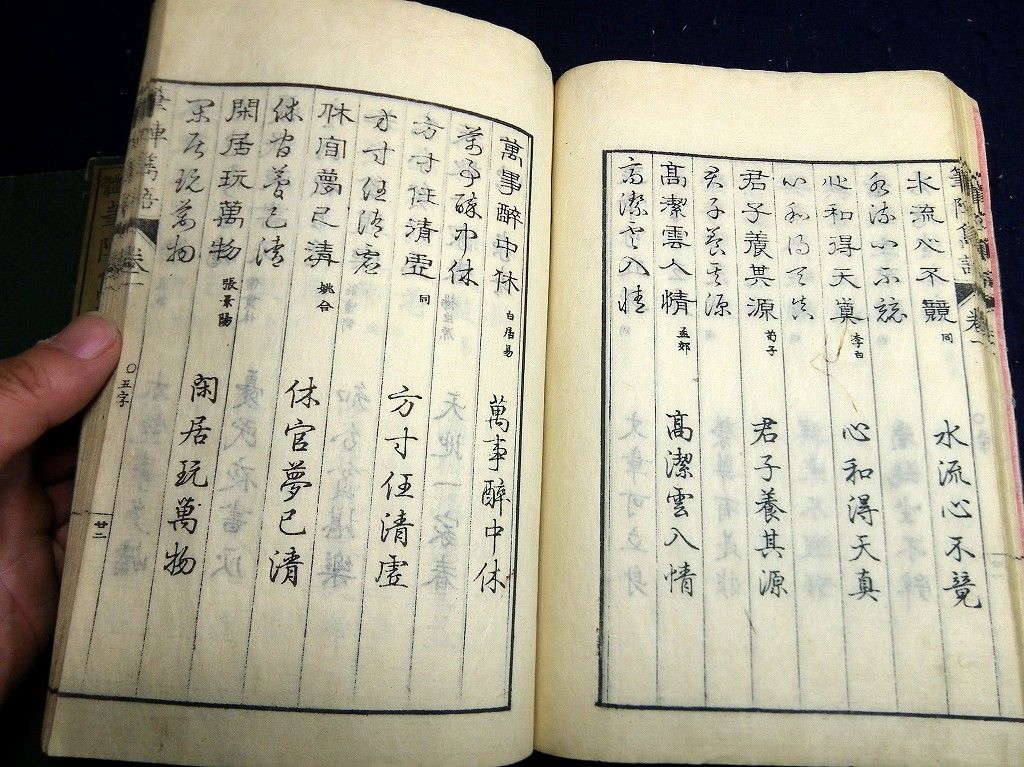 水流心不競
同
水流心不競
水流心不競
心和得天真
李白
心和得天真
心和得天真
君子養其源
荀子
君子養其源
君子養其源
高潔雲入情
孟郊
高潔雲入情
高潔雲入情
萬事醉中休
白居易
萬事醉中休
萬事醉中休
方寸任清虛
同
方寸任清虛
方寸任清虛
休官夢已清
姚合
休官夢已清
休官夢已清
閑居玩萬物
張景陽
閑居玩萬物
閑居玩萬物
卷一
〇五字
廿二